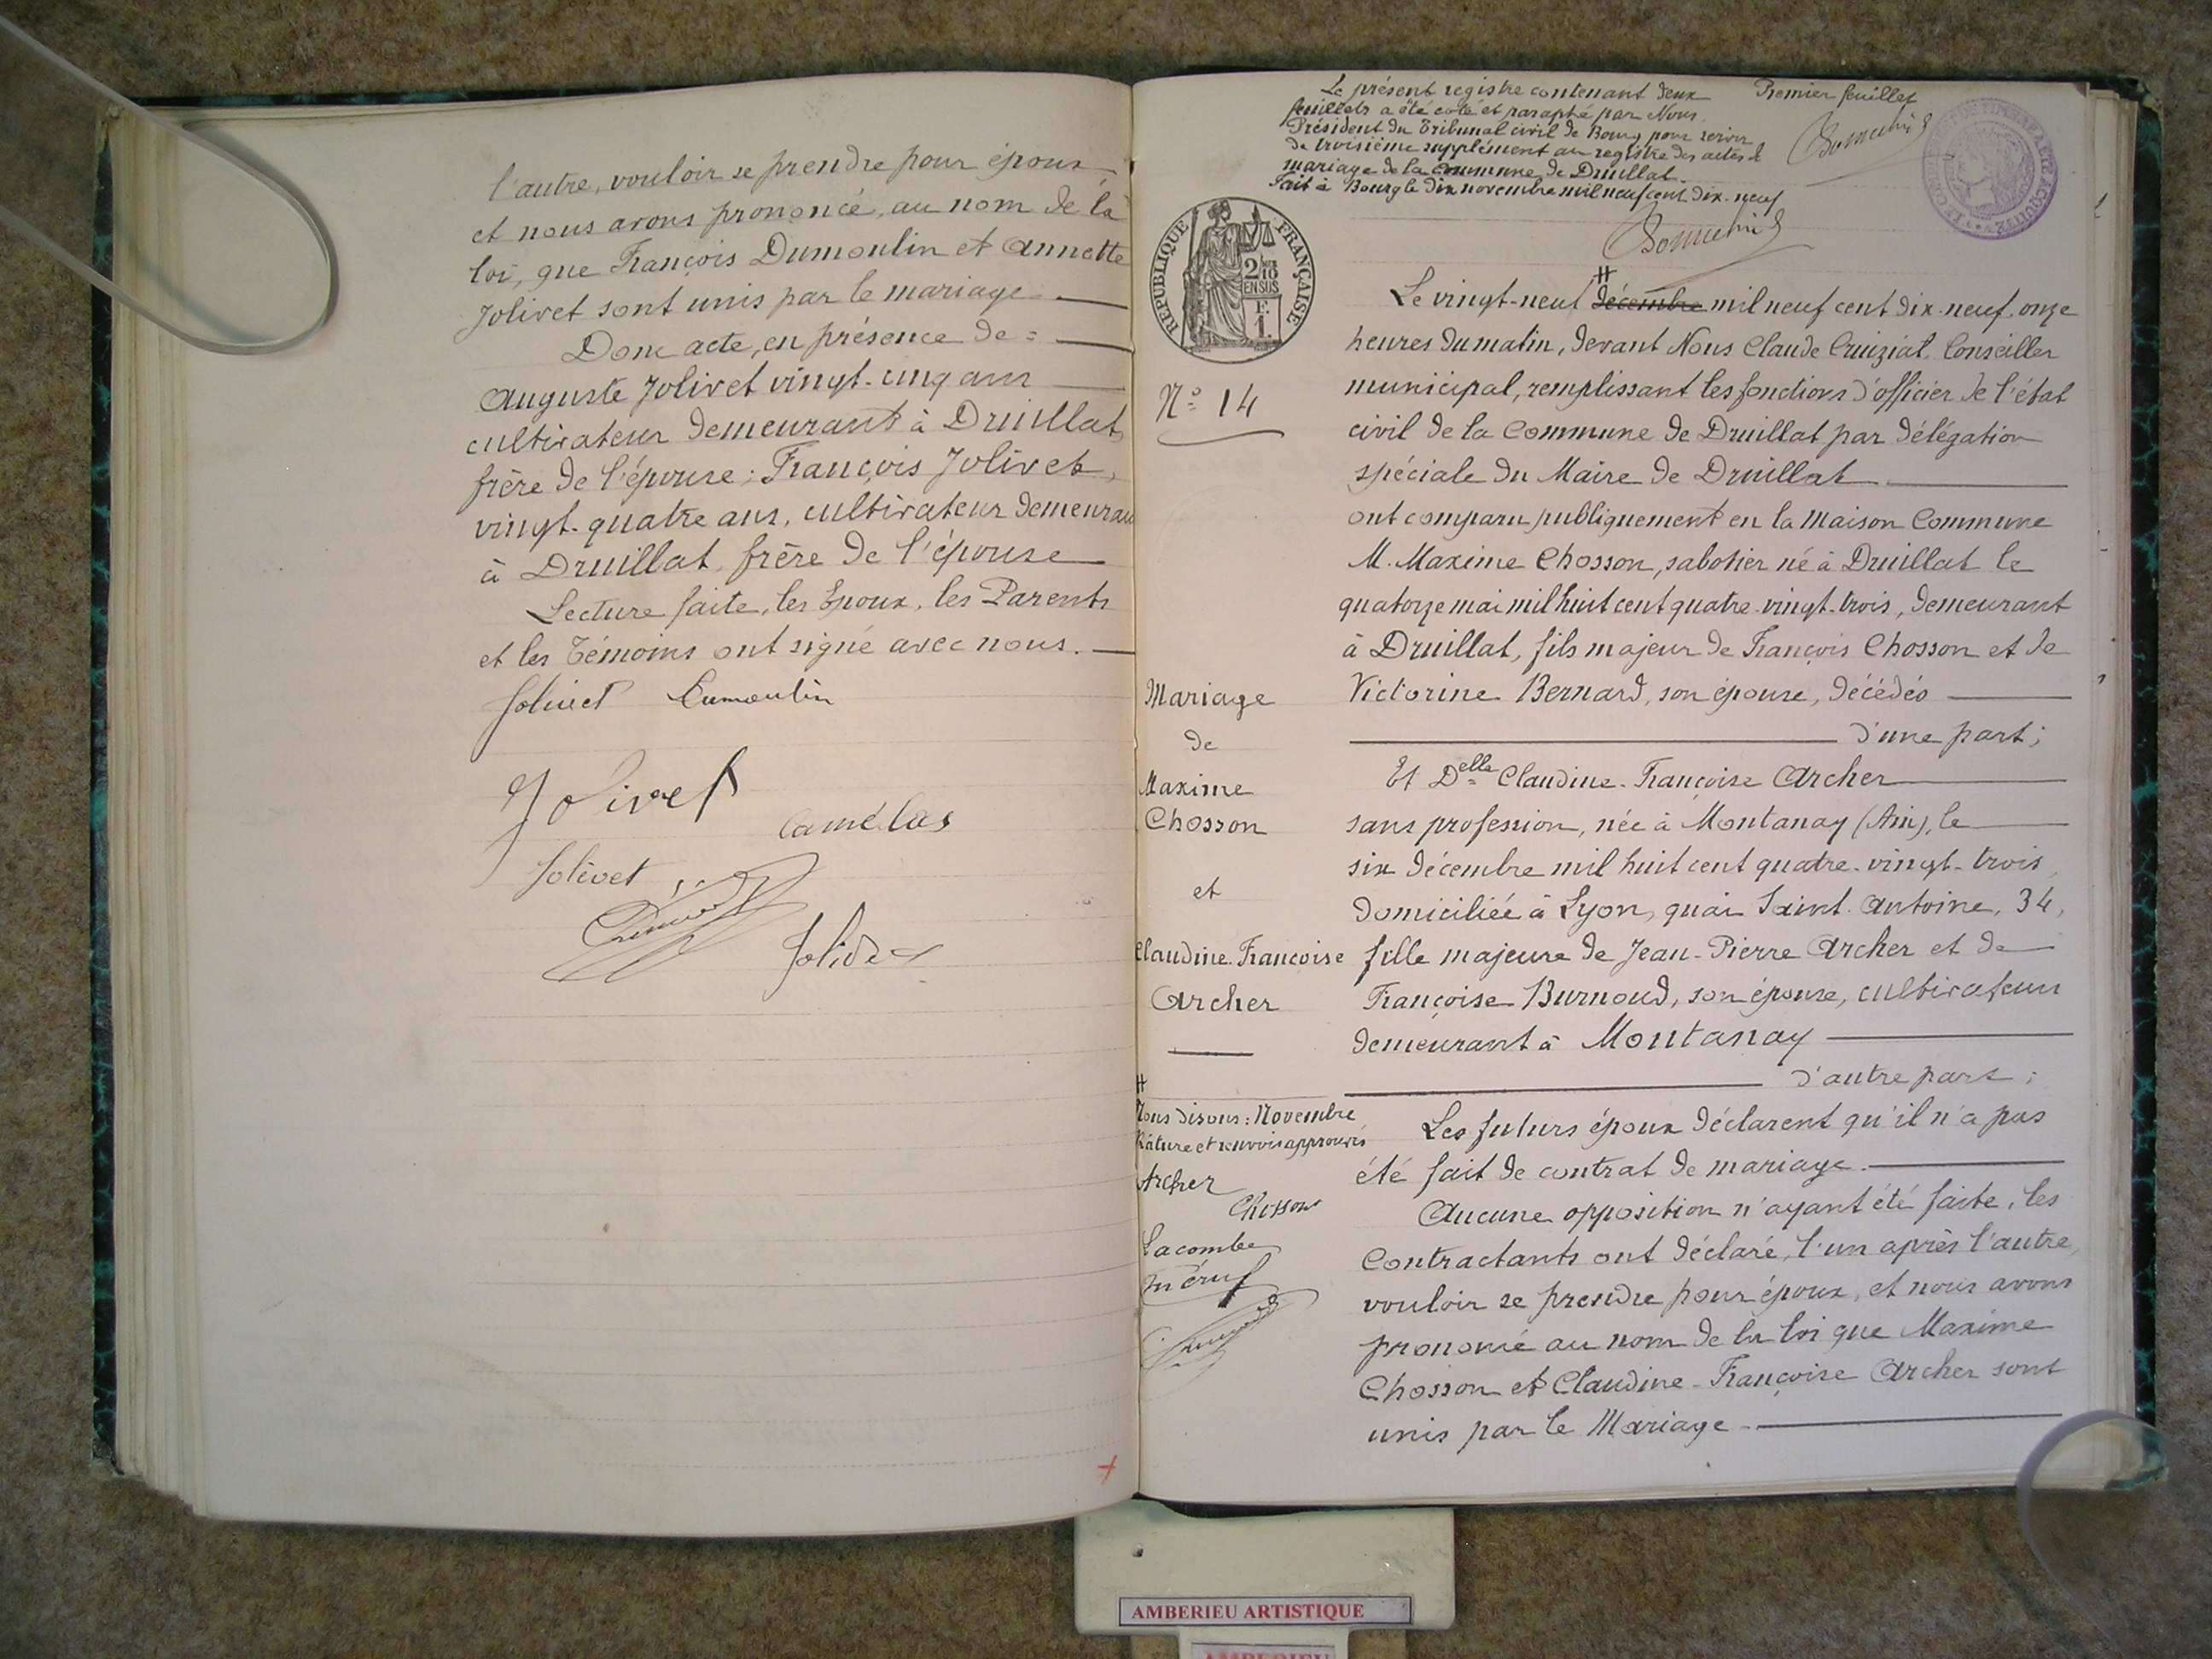 l'autre, vouloir se prendre pour époux
et nous avons prononcé, au nom de la
loi, que François Dumoulin et Annette
Jolivet sont unis par le mariage.
Donc acte, en présence de :
Auguste Jolivet vingt-cinq ans
cultivateur demeurant à Druillat,
frère de l'épouse ; François Jolivet,
vingt-quatre ans, cultivateur demeuran
à Druillat, frère de l'épouse
Lecture faite, les Epoux, les Parents
et les Témoins ont signé avec nous.
Jolivet Dumoulin
Jolivet
Camélas
Jolivet
Jolivet
Le présent registre contenant deux
feuillets a été coté et paraphé par Nous
Président du Tribunal civil de Bourg pour servir
de troisième supplément au registre des actes de
mariage de la Commune de Druillat.
Fait à Bourg le dix novembre mil neuf cent dix-neuf
Premier feuillet
RÉPUBLIQUE FRANÇAISE
2/10
EN SUS
F.
1.
N° 14
Mariage
de
Maxime
Chosson
et
Claudine-Françoise
Archer
H
Nous disons : Novembre
Râture et renvois approuvés
Archer
Chosson
Lacombe
H
Le vingt-neuf décembre mil neuf cent dix-neuf, onze
heures du matin, devant Nous Claude Cruiziat, Conseiller
municipal, remplissant les fonctions d'officier de l'état
civil de la Commune de Druillat par délégation
spéciale du Maire de Druillat
ont comparu publiquement en la Maison Commune
M. Maxime Chosson, sabotier né à Druillat le
quatorze mai mil huit cent quatre-vingt-trois, demeurant
à Druillat, fils majeur de François Chosson et de
Victorine Bernard, son épouse, décédés
d'une part ;
Et Delle Claudine-Françoise Archer
sans profession, née à Montanay (Ain), le
six décembre mil huit cent quatre-vingt-trois,
domiciliée à Lyon, quai Saint-Antoine, 34,
fille majeure de Jean-Pierre Archer et de
Françoise Burnoud, son épouse, cultivateurs
demeurant à Montanay
d'autre part ;
Les futurs époux déclarent qu'il n'a pas
été fait de contrat de mariage.
Aucune opposition n'ayant été faite, les
Contractants ont déclaré, l'un après l'autre,
vouloir se prendre pour époux, et nous avons
prononcé au nom de la loi que Maxime
Chosson et Claudine-Françoise Archer sont
unis par le Mariage
AMBERIEU ARTISTIQUE
AMBERIEU